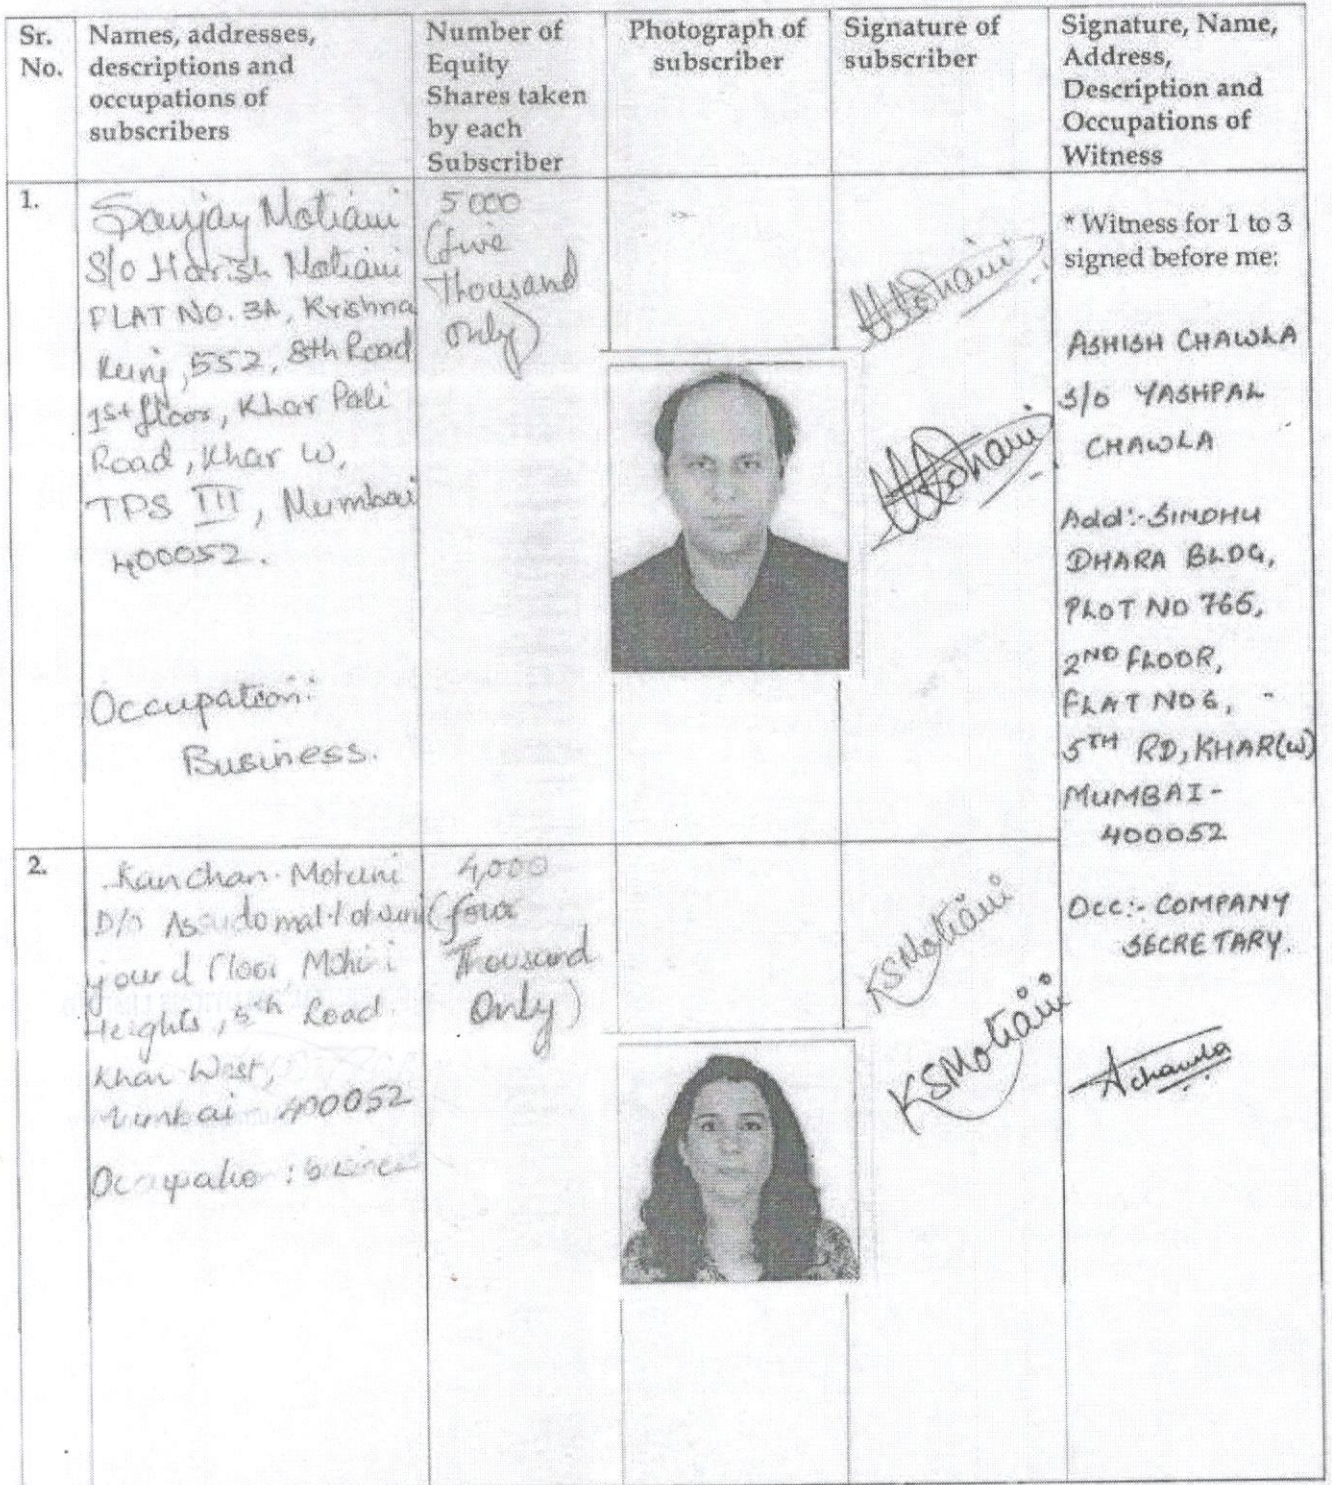 Sr. No.
Names, addresses, descriptions and occupations of subscribers
Number of Equity Shares taken by each Subscriber
Photograph of subscriber
Signature of subscriber
Signature, Name, Address, Description and Occupations of Witness
1.
Sanjay Motiani
S/o Harish Motiani
FLAT NO. 3A, Krishna
Kunj, 552, 8th Road
1st floor, Khar Pali
Road, Khar W,
TPS III, Mumbai
400052.
Occupation:
Business.
5000
(five
Thousand
only)
* Witness for 1 to 3
signed before me:
ASHISH CHAWLA
S/O YASHPAL
CHAWLA
Add:- SINDHU
DHARA BLDG,
PLOT NO 765,
2ND FLOOR,
FLAT NO 6,
5TH RD, KHAR(W)
MUMBAI-
400052
OCC:- COMPANY
SECRETARY.
Achawla
2.
Kanchan Motiani
D/o
Floor,
Heights, 5th Road
Khar West,
Mumbai 400052
4,000
(four
Thousand
Only)
KSMotiani
KSMotiani